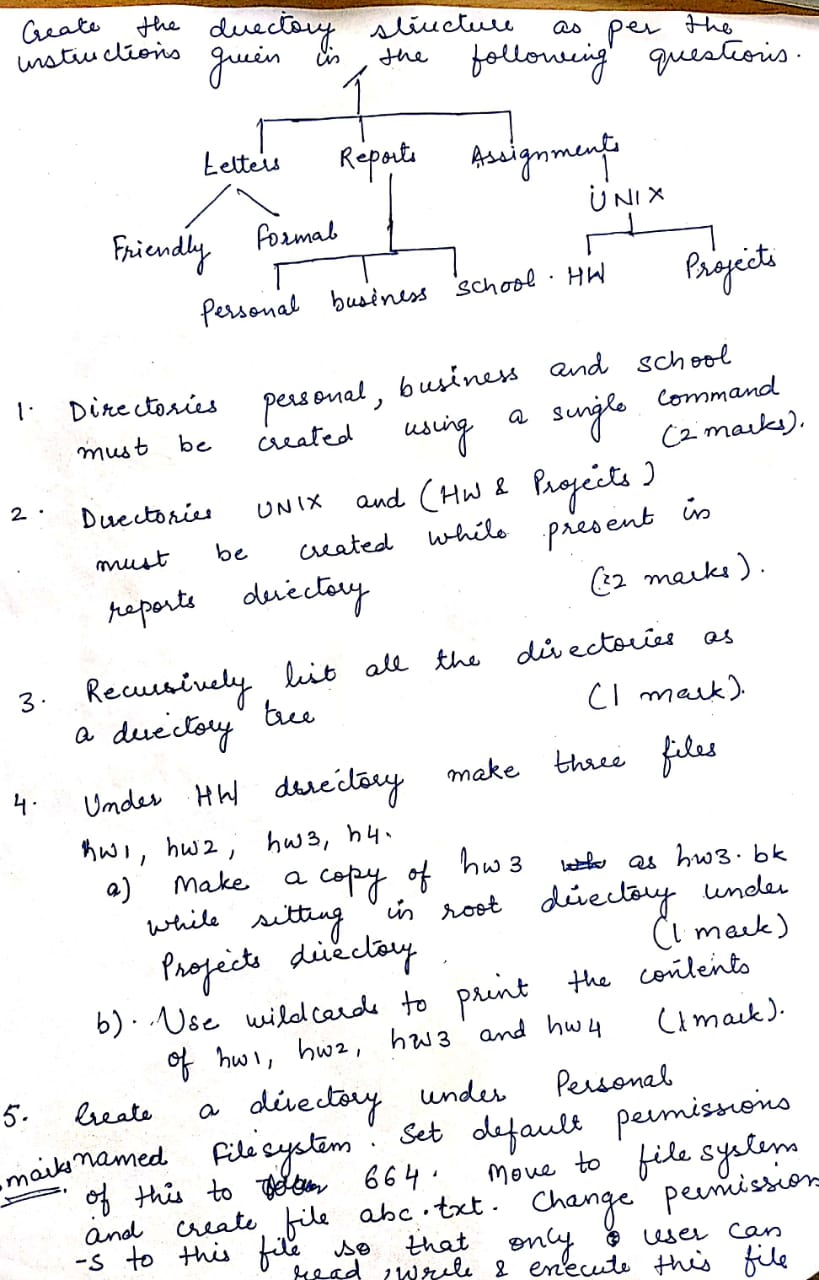 Create the directory structure as per the
instructions given in the following questions.
/
Letters Reports Assignments
UNIX
Friendly Formal
Personal business school . HW Projects
1. Directories personal, business and school
must be created using a single command
(2 marks).
2. Directories UNIX and (HW & Projects)
must be created while present in
reports directory (2 marks).
3. Recursively list all the directories as
a directory tree (1 mark).
4. Under HW directory make three files
hw1, hw2, hw3, h4.
a) Make a copy of hw3 as hw3.bk
while sitting in root directory under
Projects directory. (1 mark)
b). Use wildcards to print the contents
of hw1, hw2, hw3 and hw4 (1 mark).
5. Create a directory under Personal
marks named filesystem. Set default permissions
of this to 664. Move to filesystem
and create file abc.txt. Change permission
-s to this file so that only user can
read, write & execute this file